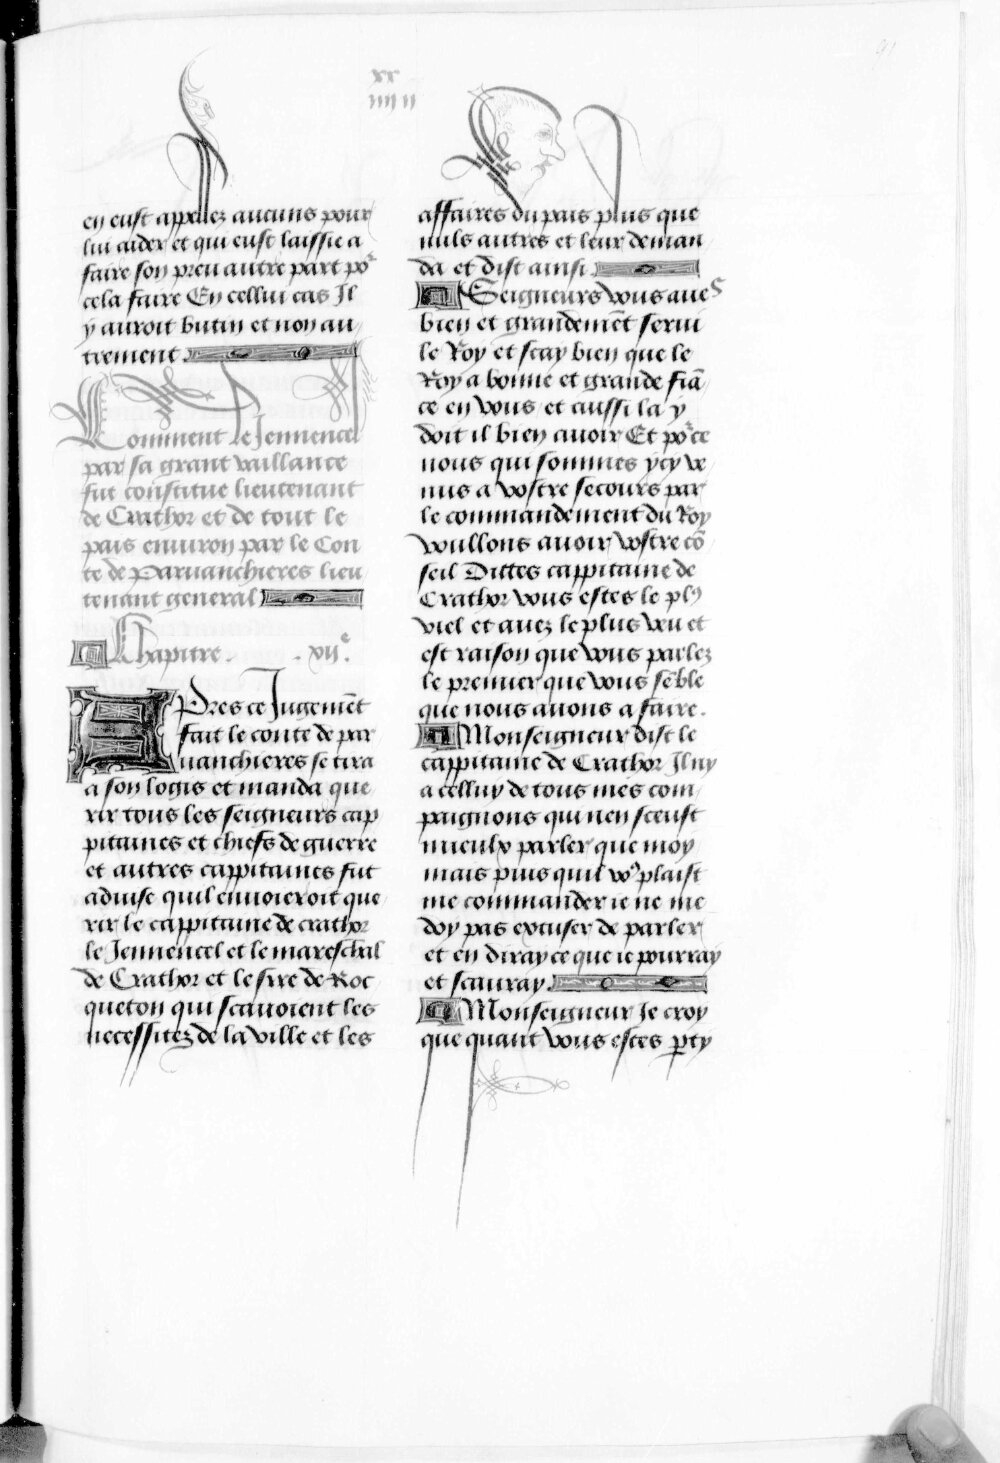 xx
iiii ii
91
en eust appellez aucuns pour
lui aider et qui eust laissie a
faire son preu autre part por
cela faire En cellui cas Il
y auroit butin et non au
trement
Comment le Jennencel
par sa grant vaillance
fut constitue lieutenant
de Crathor et de tout le
pais enuiron par le Con
te de Paruanchieres lieu
tenant general
Chapitre . . xvij e.
APres ce Jugemēt
fait le conte de par
uanchieres se tira
a son logis et manda que
rir tous les seigneurs cap
pitaines et chiefs de guerre
et autres cappitaines fut
aduise quil enuoieroit que
rir le cappitaine de crathor
le Jennencel et le mareschal
de Crathor et le sire de Roc
queton qui scauoient les
necessitez de la ville et les
affaires du pais plus que
nuls autres et leur deman
da et dist ainsi
Seigneurs vous aues
bien et grandemēt serui
le Roy et scay bien que le
Roy a bonne et grande fiā
ce en vous et aussi la y
doit il bien auoir Et por ce
nous qui sommes ycy ve
nus a vostre secours par
le commandement du Roy
voullons auoir vostre cō
seil Dittes cappitaine de
Crathor vous estes le plꝰ
viel et auez le plus veu et
est raison que vous parlez
le premier que vous sēble
que nous auons a faire.
Monseigneur dist le
cappitaine de Crathor Il ny
a celluy de tous mes com
paignons qui nen sceust
mieulx parler que moy
mais puis quil voꝰ plaist
me commander ie ne me
doy pas excuser de parler
et en diray ce que ie pourray
et scauray.
Monseigneur Je croy
que quant vous estes ꝑty